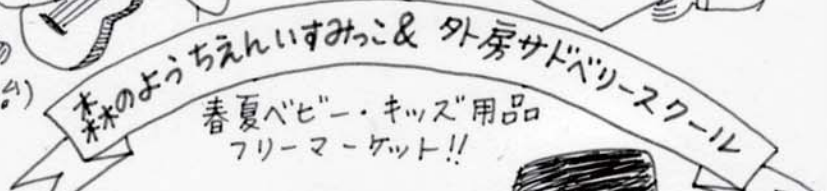 森のようちえんいすみっこ& 外房サドベリースクール
春夏ベビー・キッズ用品
フリーマーケット!!